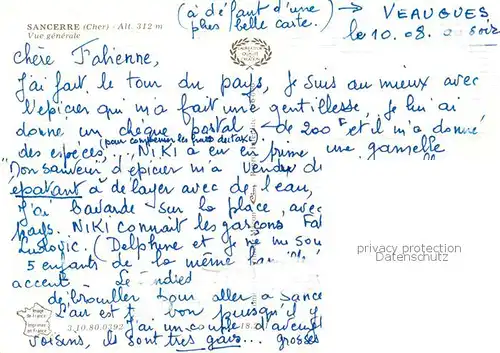 SANCERRE (Cher) - Alt. 312 m
Vue générale
(à défaut d'une plus belle carte.) → VEAUGUES,
le 10.08. soir
Chère Fabienne,
J'ai fait le tour du pays, je suis au mieux avec
l'épicier qui m'a fait une gentillesse, je lui ai
donné un chèque postal de 200 F et il m'a donné
(pour compléter les frais de taxi)
des espèces, ... NIKI a eu en prime une gamelle
"Don sauveur d'épicier m'a vendu du
épatant à délayer avec de l'eau,
J'ai bavardé sur la place, avec
pays. NIKI connait les garçons
Ludovic. (Delphine et je ne me
5 enfants de la même
accent - Le
débrouiller pour aller à Sance
L'air est bon puisqu'il y
J'ai un couple d'aveugl
voisins, ils sont très gais... grosses
privacy protection
Datenschutz
Image de France
Imprimée en France
3.10.80.0292
18.